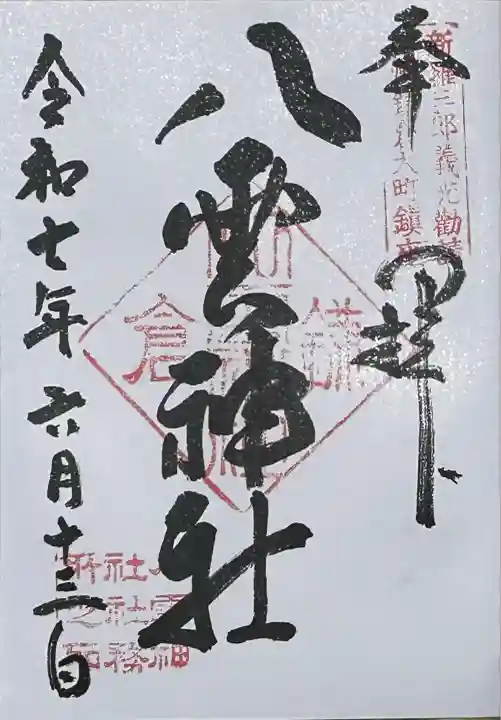 奉拝
新羅三郎義光勧請
大町鎮座
八雲神社
鎌倉
令和七年六月十三日
八雲神
社社務
所之印